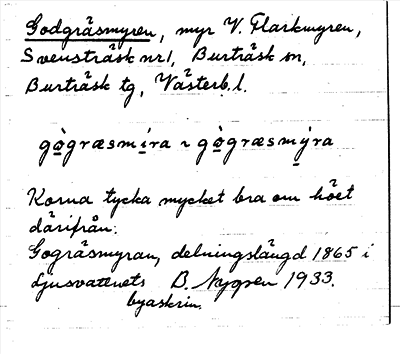 Godgräsmyren, myr V. Flarkmyren,
Svensträsk nr 1, Burträsk sn,
Burträsk tg, Västerb. l.
gògræsmira ~ gògræsmýra
Korna tycka mycket bra om höet
därifrån.
Gogräsmyran, delningslängd 1865 i
Ljusvattnets B. Nygren 1933.
byaskrin.